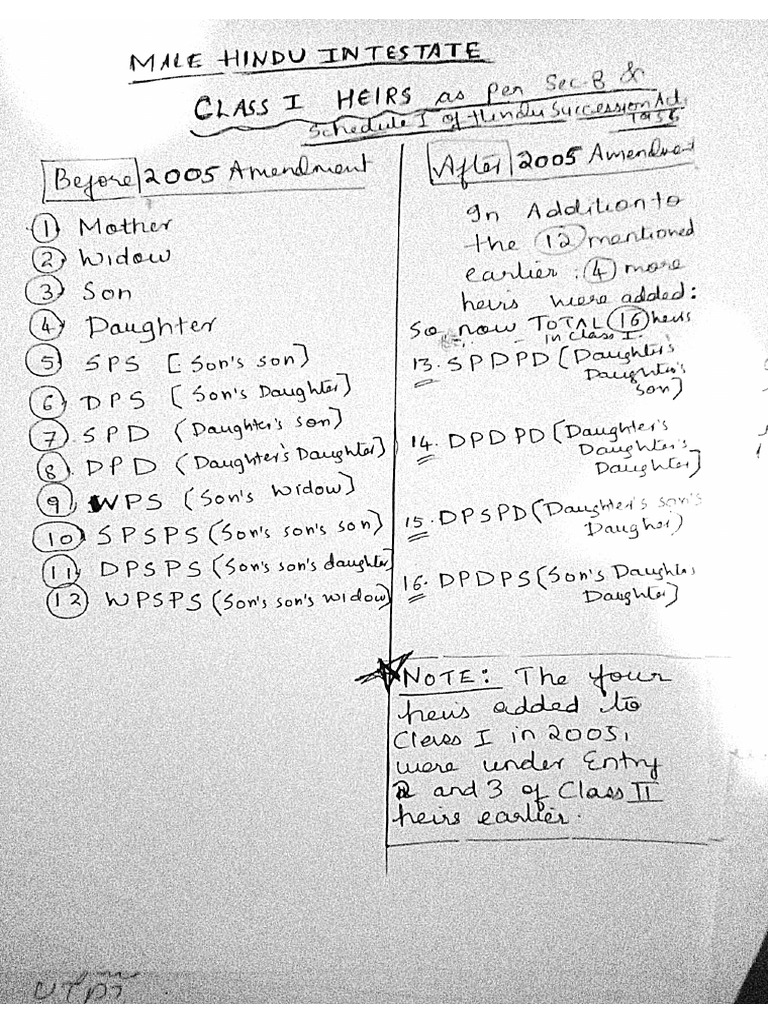 MALE HINDU INTESTATE
CLASS I HEIRS as per Sec-8 &
Schedule I of Hindu Succession Act,
1956
Before 2005 Amendment
1 Mother
2 Widow
3 Son
4 Daughter
5 SPS [Son's son)
6 DPS [Son's Daughter)
7. SPD (Daughter's son)
8. DPD (Daughter's Daughter)
9. WPS (Son's widow)
10 SPSPS (Son's son's son)
11 DPSPS (Son's son's daughter)
12 WPSPS (Son's son's widow)
After 2005 Amendment
In Addition to
the 12 mentioned
earlier, 4 more
heirs were added:
So now TOTAL 16 heirs
in Class I.
13. SPDPD (Daughter's
Daughter's
son)
14. DPDPD (Daughter's
Daughter's
Daughter)
15. DPSPD (Daughter's son's
Daugher)
16. DPDPS (Son's Daughter
Daughter)
NOTE: The four
heirs added to
Class I in 2005,
were under Entry
2 and 3 of Class II
heirs earlier.